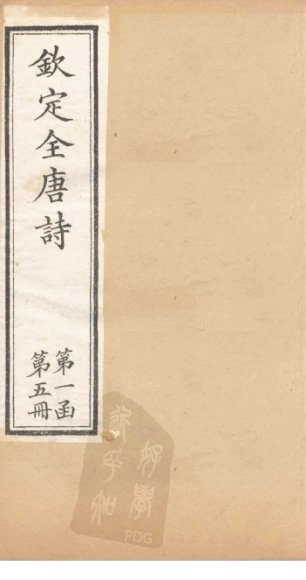 欽定全唐詩
第一函
第五冊
PDG